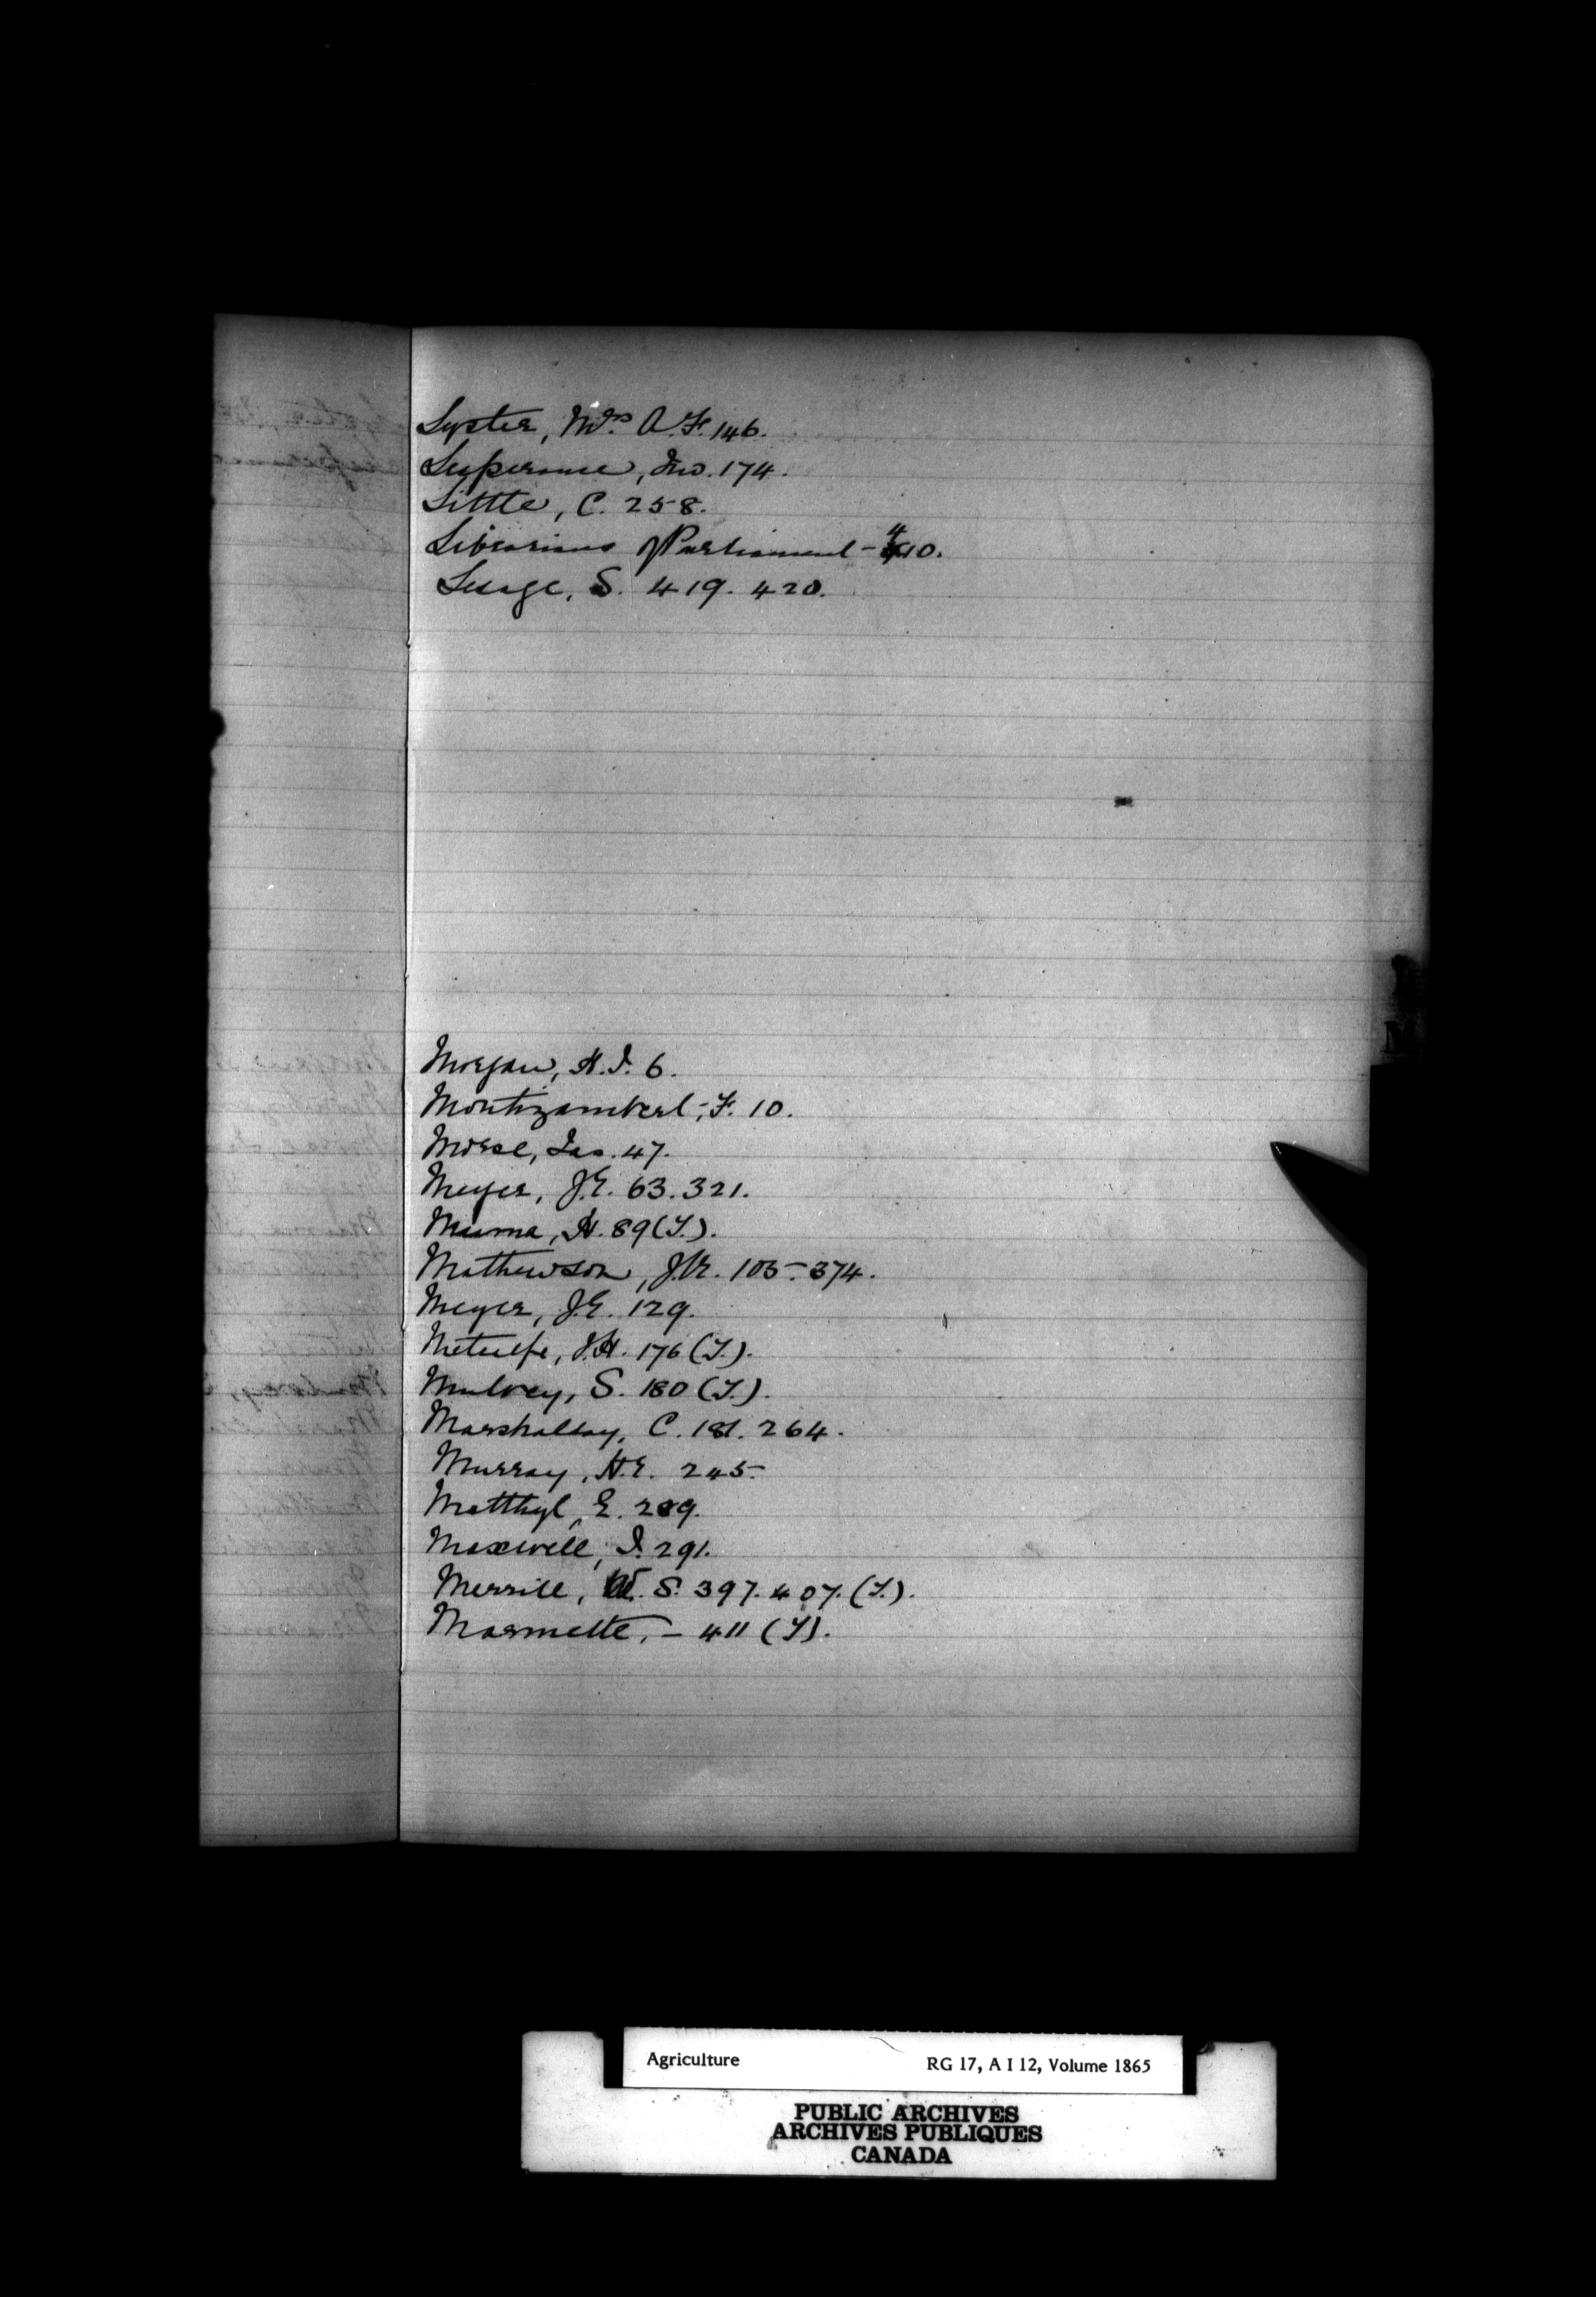 Lyster, Mrs A. F. 146.
Lesperance, Jno. 174.
Little, C. 258.
Librarians of Parliament - 410.
Lesage, S. 419. 420.
Morgan, H. J. 6.
Montizambert, F. 10.
Morse, Jas. 47.
Meyer, J. E. 63. 321.
Muma, H. 89 (T.).
Mathewson, J. 105. 374.
Meyer, J. E. 129.
Metcalfe, J. H. 176 (T.).
Mulvey, S. 180 (T.).
Marshallsay, C. 181. 264.
Murray, H. E. 245.
E. 289.
Maxwell, J. 291.
Merrill, W. S. 397. 407. (T.).
Marmette, - 411 (T).
M
Agriculture RG 17, A I 12, Volume 1865
PUBLIC ARCHIVES
ARCHIVES PUBLIQUES
CANADA